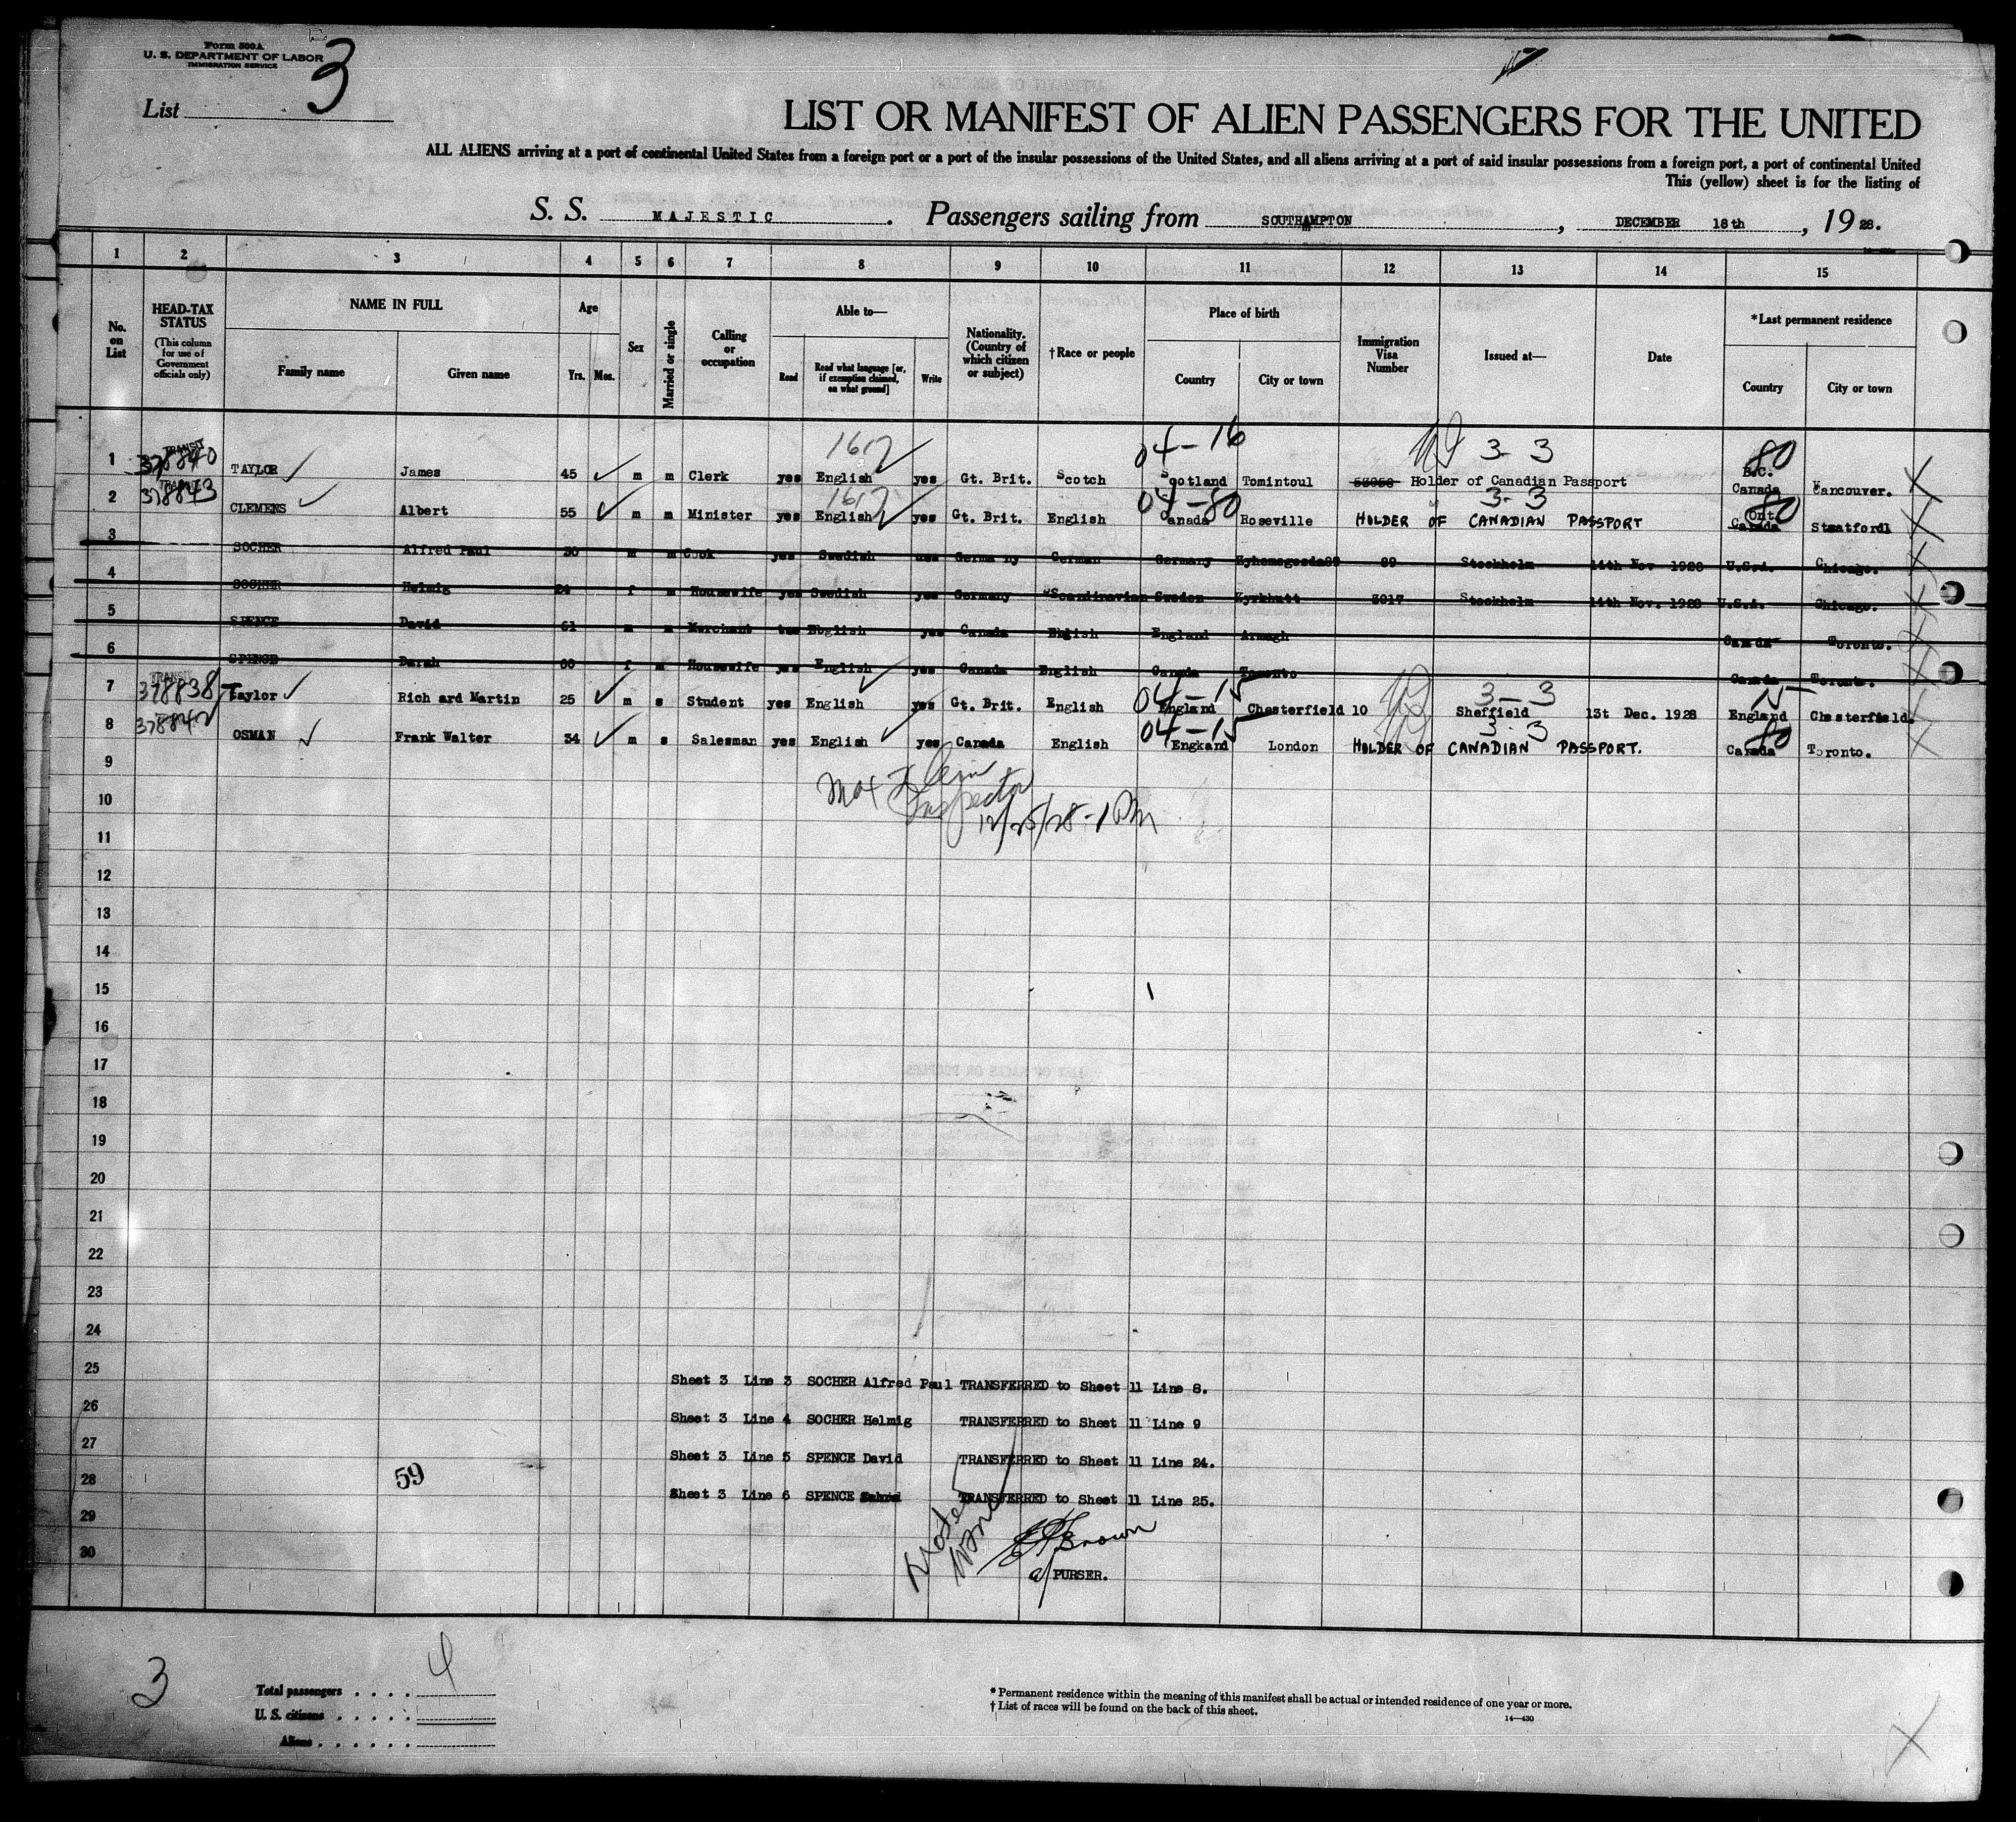 Form 500A
U. S. DEPARTMENT OF LABOR
IMMIGRATION SERVICE
List 3
LIST OR MANIFEST OF ALIEN PASSENGERS FOR THE UNITED
ALL ALIENS arriving at a port of continental United States from a foreign port or a port of the insular possessions of the United States, and all aliens arriving at a port of said insular possessions from a foreign port, a port of continental United
This (yellow) sheet is for the listing of
S. S. MAJESTIC. Passengers sailing from SOUTHAMPTON, DECEMBER 18th, 1928.
1 2 3 4 5 6 7 8 9 10 11 12 13 14 15
No. on List
HEAD-TAX STATUS
(This column for use of Government officials only)
NAME IN FULL
Family name
Given name
Age
Yrs. Mos.
Sex
Married or single
Calling or occupation
Able to—
Read
Read what language [or, if exemption claimed, on what ground]
Write
Nationality. (Country of which citizen or subject)
†Race or people
Place of birth
Country
City or town
Immigration Visa Number
Issued at—
Date
*Last permanent residence
Country
City or town
1612 04-16 3-3 80
1 TRANSIT 378840 TAYLOR James 45 m m Clerk yes English yes Gt. Brit. Scotch Scotland Tomintoul Holder of Canadian Passport B.C. Canada Vancouver.
1612 04-80 3-3 80
2 TRANSIT 378843 CLEMENS Albert 55 m m Minister yes English yes Gt. Brit. English Canada Roseville HOLDER OF CANADIAN PASSPORT Ont. Canada Staatfordl
3 SOCHER Alfred Paul 30 m m Cook yes Swedish yes Germany German Germany 89 Stockholm 14th Nov 1928 U.S.A. Chicago.
4 SOCHER Helmig 24 f m Housewife yes Swedish yes Germany Scandinavian Sweden 3017 Stockholm 14th Nov. 1928 U.S.A. Chicago.
5 SPENCE David 61 m m Merchant yes English yes Canada English England Armagh Canada Toronto.
6 SPENCE 60 f m Housewife yes English yes Canada English Canada Toronto Canada Toronto.
04-15 3-3 15
7 TRANSIT 378838 Taylor Rich ard Martin 25 m s Student yes English yes Gt. Brit. English England Chesterfield 10 Sheffield 13t Dec. 1928 England Chesterfield.
04-15 3 3 80
8 378842 OSMAN Frank Walter 34 m s Salesman yes English yes Canada English Engkand London HOLDER OF CANADIAN PASSPORT. Canada Toronto.
9
Inspector
12/25/28-1 PM
10
11
12
13
14
15
16
17
18
19
20
21
22
23
24
25 Sheet 3 Line 3 SOCHER Alfred Paul TRANSFERRED to Sheet 11 Line 8.
26 Sheet 3 Line 4 SOCHER Helmig TRANSFERRED to Sheet 11 Line 9
27 Sheet 3 Line 5 SPENCE David TRANSFERRED to Sheet 11 Line 24.
28 59 Sheet 3 Line 6 SPENCE TRANSFERRED to Sheet 11 Line 25.
29 Brown
30 a/ PURSER.
3
Total passengers . . . . 4
U. S. citizens . . . . .
Aliens . . . . . .
* Permanent residence within the meaning of this manifest shall be actual or intended residence of one year or more.
† List of races will be found on the back of this sheet.
14—430